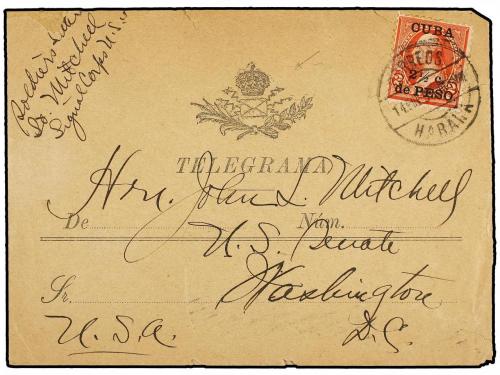 Soldier's Letter
Mitchell
Signal Corps U.S.
CUBA
2½ c.
de PESO
HABANA
TELEGRAMA
Hon. John L. Mitchell
De Núm.
U.S. Senate
Sr. Washington
U.S.A. D.C.